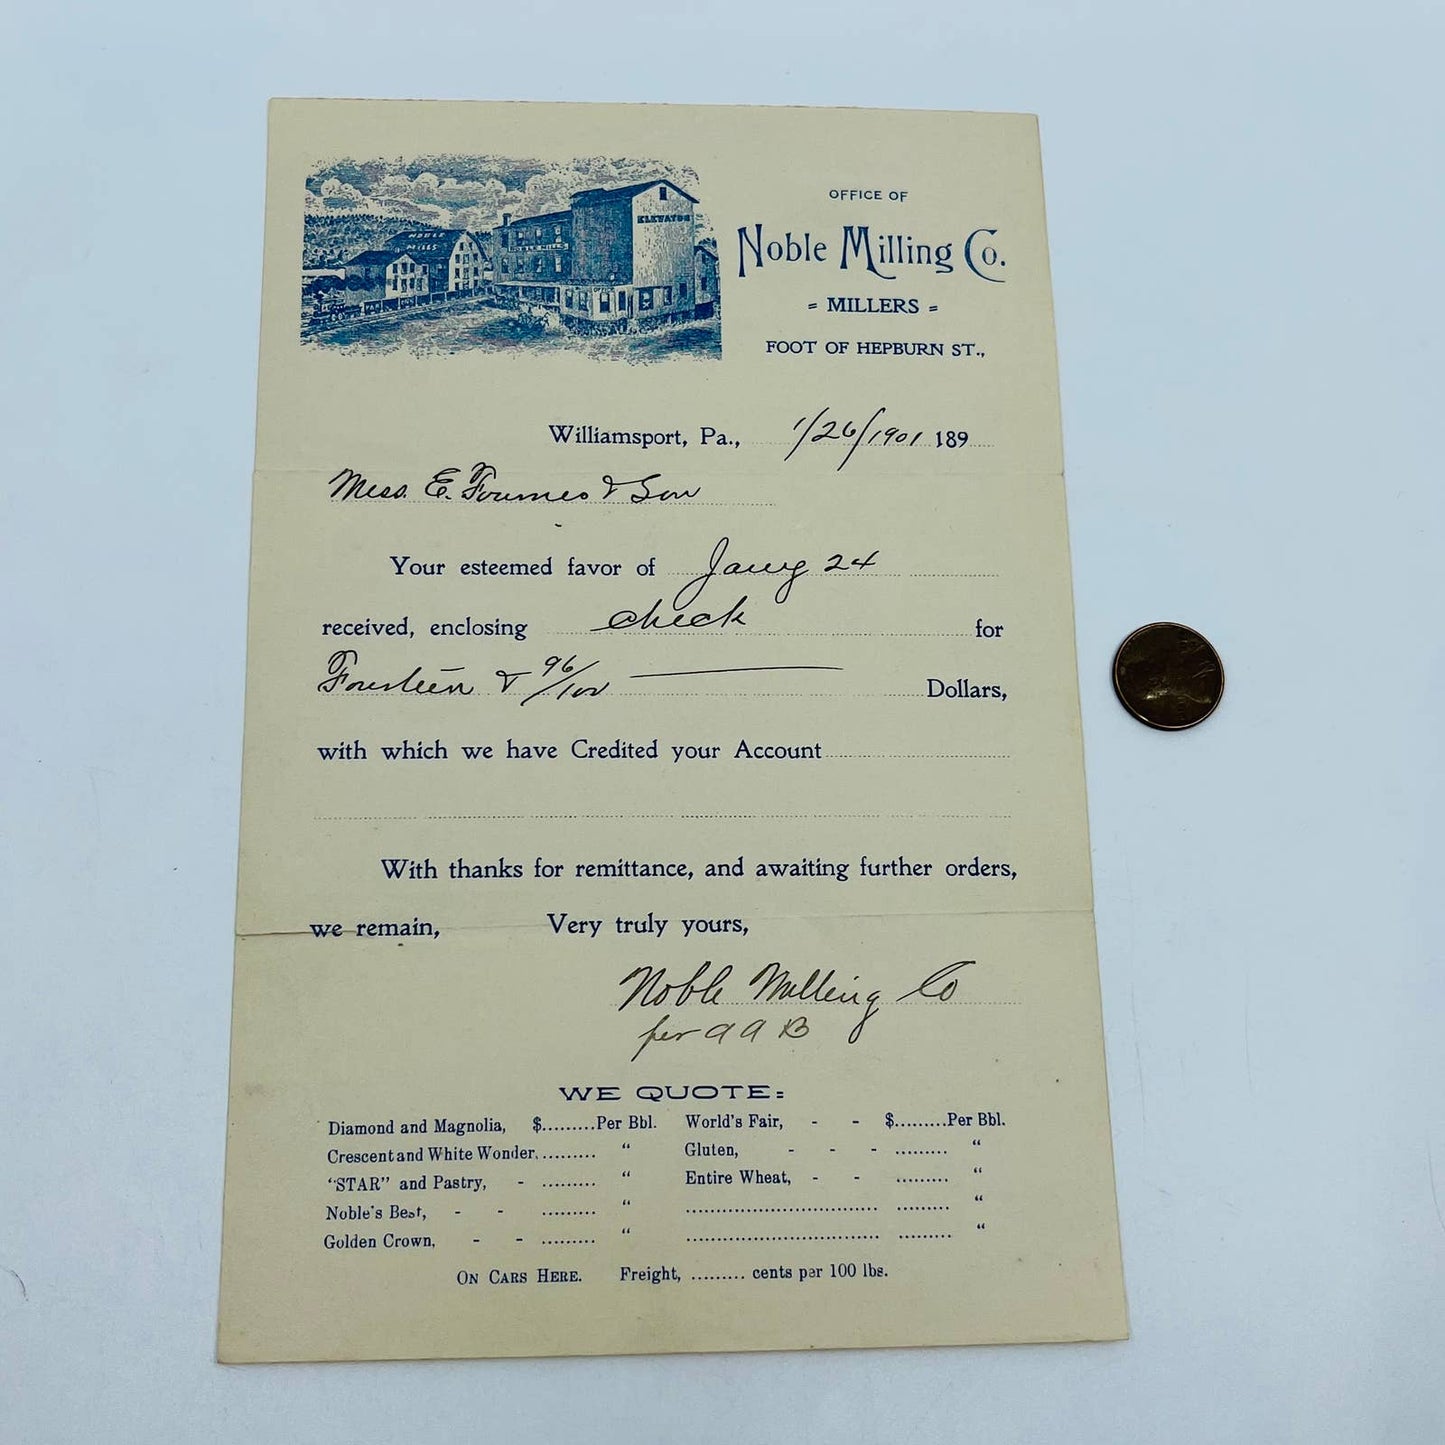 NOBLE MILLS
NOBLE MILLS
ELEVATOR
OFFICE OF
Noble Milling Co.
= MILLERS =
FOOT OF HEPBURN ST.,
Williamsport, Pa., 1/26/1901 189
Mess. E. & Son
Your esteemed favor of Jany 24
received, enclosing check for
Fourteen & 96/100 Dollars,
with which we have Credited your Account
With thanks for remittance, and awaiting further orders,
we remain, Very truly yours,
Noble Milling Co
per A A B
WE QUOTE=
Diamond and Magnolia, $.........Per Bbl. World's Fair, - - $.........Per Bbl.
Crescent and White Wonder, ......... “ Gluten, - - - ......... “
“STAR” and Pastry, - ......... “ Entire Wheat, - - ......... “
Noble's Best, - - ......... “ .................................. ......... “
Golden Crown, - - ......... “ .................................. ......... “
ON CARS HERE. Freight, ......... cents per 100 lbs.